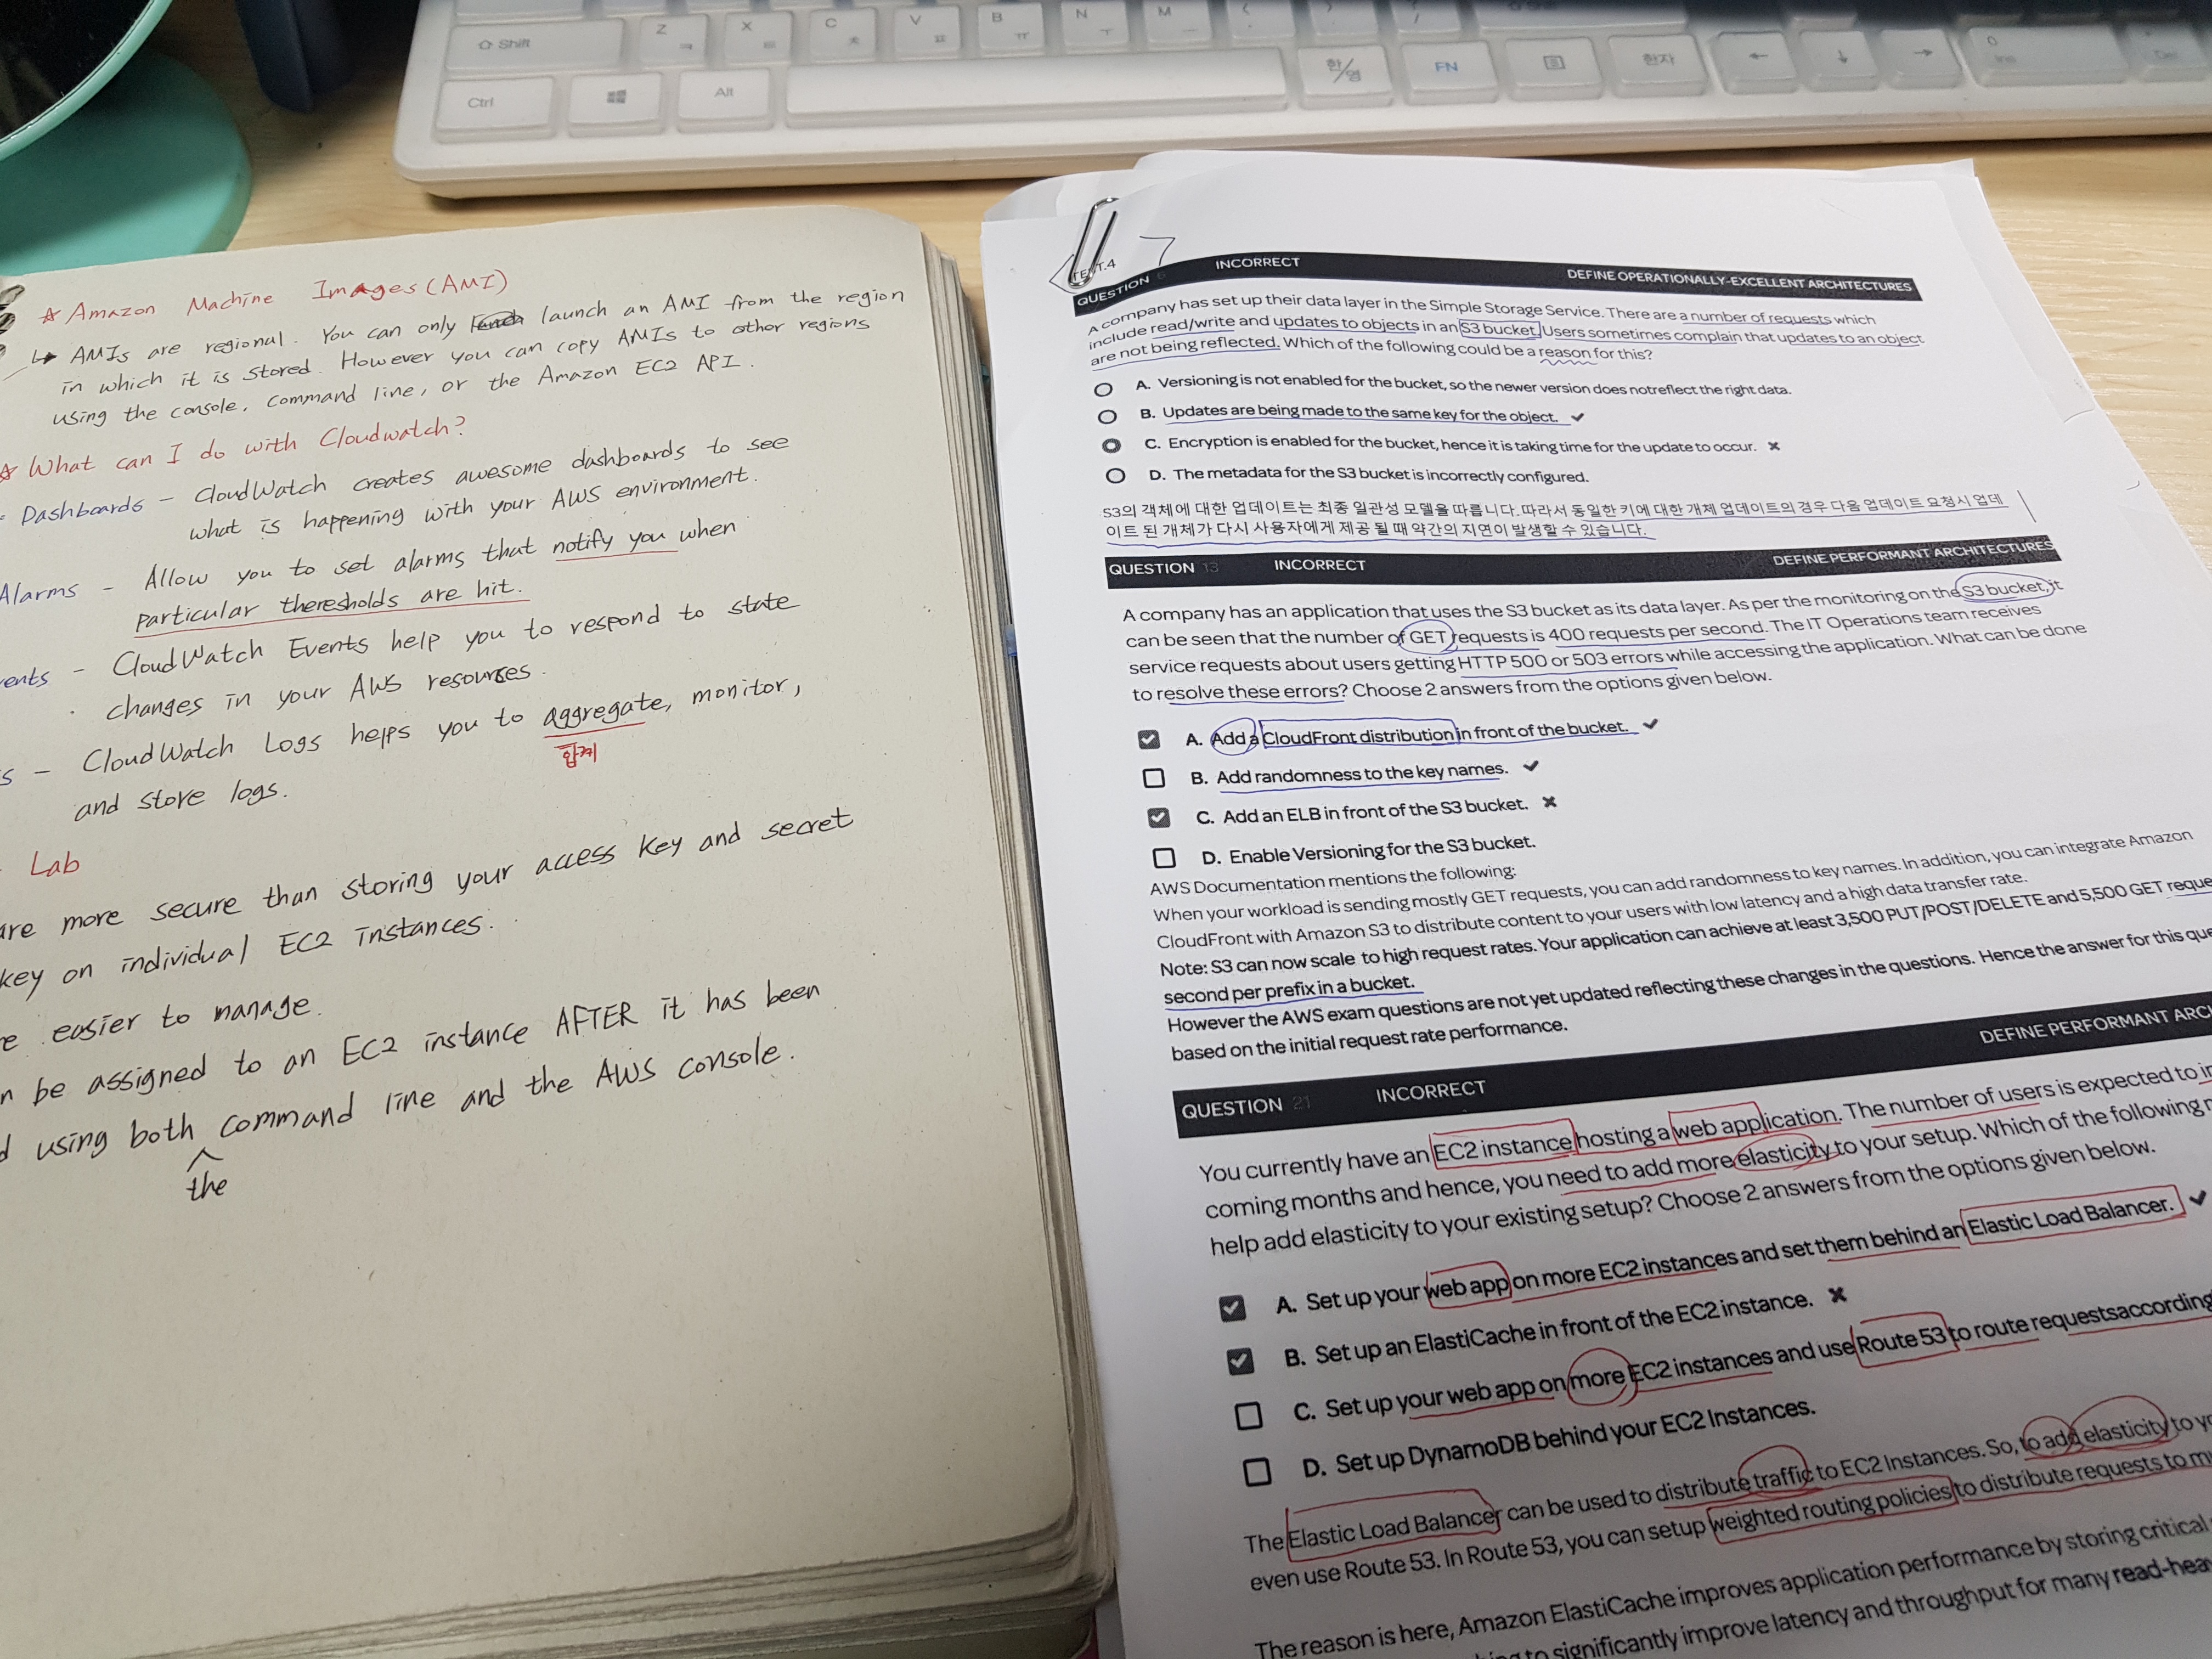 Shift
Z
X
C
V
B
N
M
Ctrl
Alt
한/영
FN
한자
☆ Amazon Machine Images (AMI)
↳ AMIs are regional. You can only launch an AMI from the region
in which it is stored. However you can copy AMIs to other regions
using the console, command line, or the Amazon EC2 API.
☆ What can I do with Cloudwatch?
Dashboards - CloudWatch creates awesome dashboards to see
what is happening with your AWS environment.
Alarms - Allow you to set alarms that notify you when
particular theresholds are hit.
ents - CloudWatch Events help you to respond to state
changes in your AWS resources.
s - CloudWatch Logs helps you to aggregate, monitor,
합계
and store logs.
Lab
are more secure than storing your access key and secret
key on individual EC2 instances.
e easier to manage.
n be assigned to an EC2 instance AFTER it has been
d using both command line and the AWS console.
the
7
TEST.4
QUESTION 6 INCORRECT DEFINE OPERATIONALLY-EXCELLENT ARCHITECTURES
A company has set up their data layer in the Simple Storage Service. There are a number of requests which
include read/write and updates to objects in an S3 bucket. Users sometimes complain that updates to an object
are not being reflected. Which of the following could be a reason for this?
A. Versioning is not enabled for the bucket, so the newer version does notreflect the right data.
B. Updates are being made to the same key for the object. ✓
C. Encryption is enabled for the bucket, hence it is taking time for the update to occur. ✗
D. The metadata for the S3 bucket is incorrectly configured.
S3의 객체에 대한 업데이트는 최종 일관성 모델을 따릅니다. 따라서 동일한 키에 대한 개체 업데이트의 경우 다음 업데이트 요청시 업데
이트 된 개체가 다시 사용자에게 제공 될 때 약간의 지연이 발생할 수 있습니다.
QUESTION 13 INCORRECT DEFINE PERFORMANT ARCHITECTURES
A company has an application that uses the S3 bucket as its data layer. As per the monitoring on the S3 bucket, it
can be seen that the number of GET requests is 400 requests per second. The IT Operations team receives
service requests about users getting HTTP 500 or 503 errors while accessing the application. What can be done
to resolve these errors? Choose 2 answers from the options given below.
A. Add a CloudFront distribution in front of the bucket. ✓
B. Add randomness to the key names. ✓
C. Add an ELB in front of the S3 bucket. ✗
D. Enable Versioning for the S3 bucket.
AWS Documentation mentions the following:
When your workload is sending mostly GET requests, you can add randomness to key names. In addition, you can integrate Amazon
CloudFront with Amazon S3 to distribute content to your users with low latency and a high data transfer rate.
Note: S3 can now scale to high request rates. Your application can achieve at least 3,500 PUT/POST/DELETE and 5,500 GET reque
second per prefix in a bucket.
However the AWS exam questions are not yet updated reflecting these changes in the questions. Hence the answer for this que
based on the initial request rate performance.
QUESTION 21 INCORRECT DEFINE PERFORMANT ARC
You currently have an EC2 instance hosting a web application. The number of users is expected to in
coming months and hence, you need to add more elasticity to your setup. Which of the following
help add elasticity to your existing setup? Choose 2 answers from the options given below.
A. Set up your web app on more EC2 instances and set them behind an Elastic Load Balancer. ✓
B. Set up an ElastiCache in front of the EC2 instance. ✗
C. Set up your web app on more EC2 instances and use Route 53 to route requestsaccording
D. Set up DynamoDB behind your EC2 Instances.
The Elastic Load Balancer can be used to distribute traffic to EC2 Instances. So, to add elasticity to yo
even use Route 53. In Route 53, you can setup weighted routing policies to distribute requests to m
The reason is here, Amazon ElastiCache improves application performance by storing critical
to significantly improve latency and throughput for many read-hea